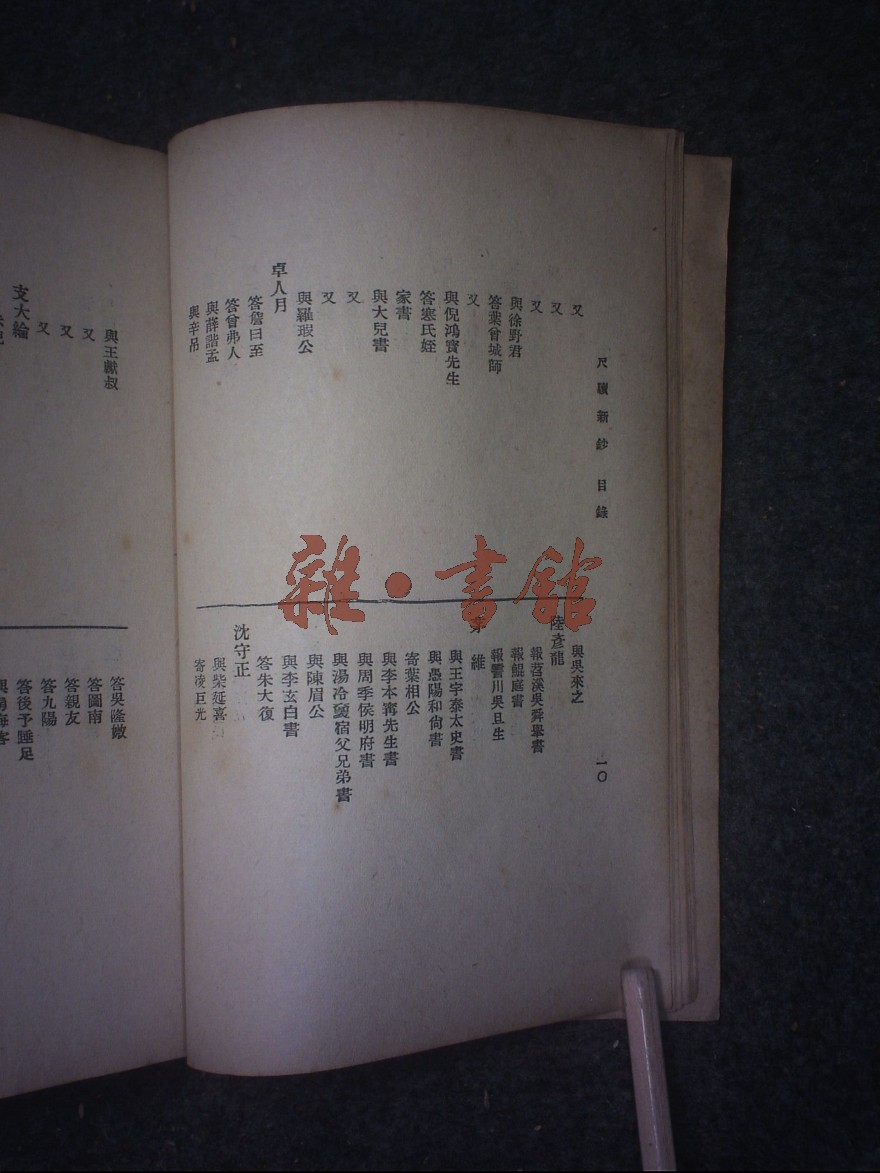 尺牘新鈔 目錄
一〇
又
又
又
與徐野君
答葉曾城師
又
與倪鴻寶先生
答寒氏姪
家書
與大兒書
又
又
與羅瑕公
卓人月
答詹日至
答曾弗人
與薛諧孟
與辛吊
與吳來之
陸彥龍
報苕溪吳舜舉書
報鯤庭書
報霅川吳旦生
維
與王宇泰太史書
與愚陽和尙書
寄葉相公
與李本寗先生書
與周季侯明府書
與湯冷宿父兄弟書
與陳眉公
與李玄白書
答朱大復
沈守正
與柴延喜
寄凌巨光
與王獻叔
又
又
又
支大綸
答吳隆媺
答圖南
答親友
答九陽
答後予睡足
雜·書館